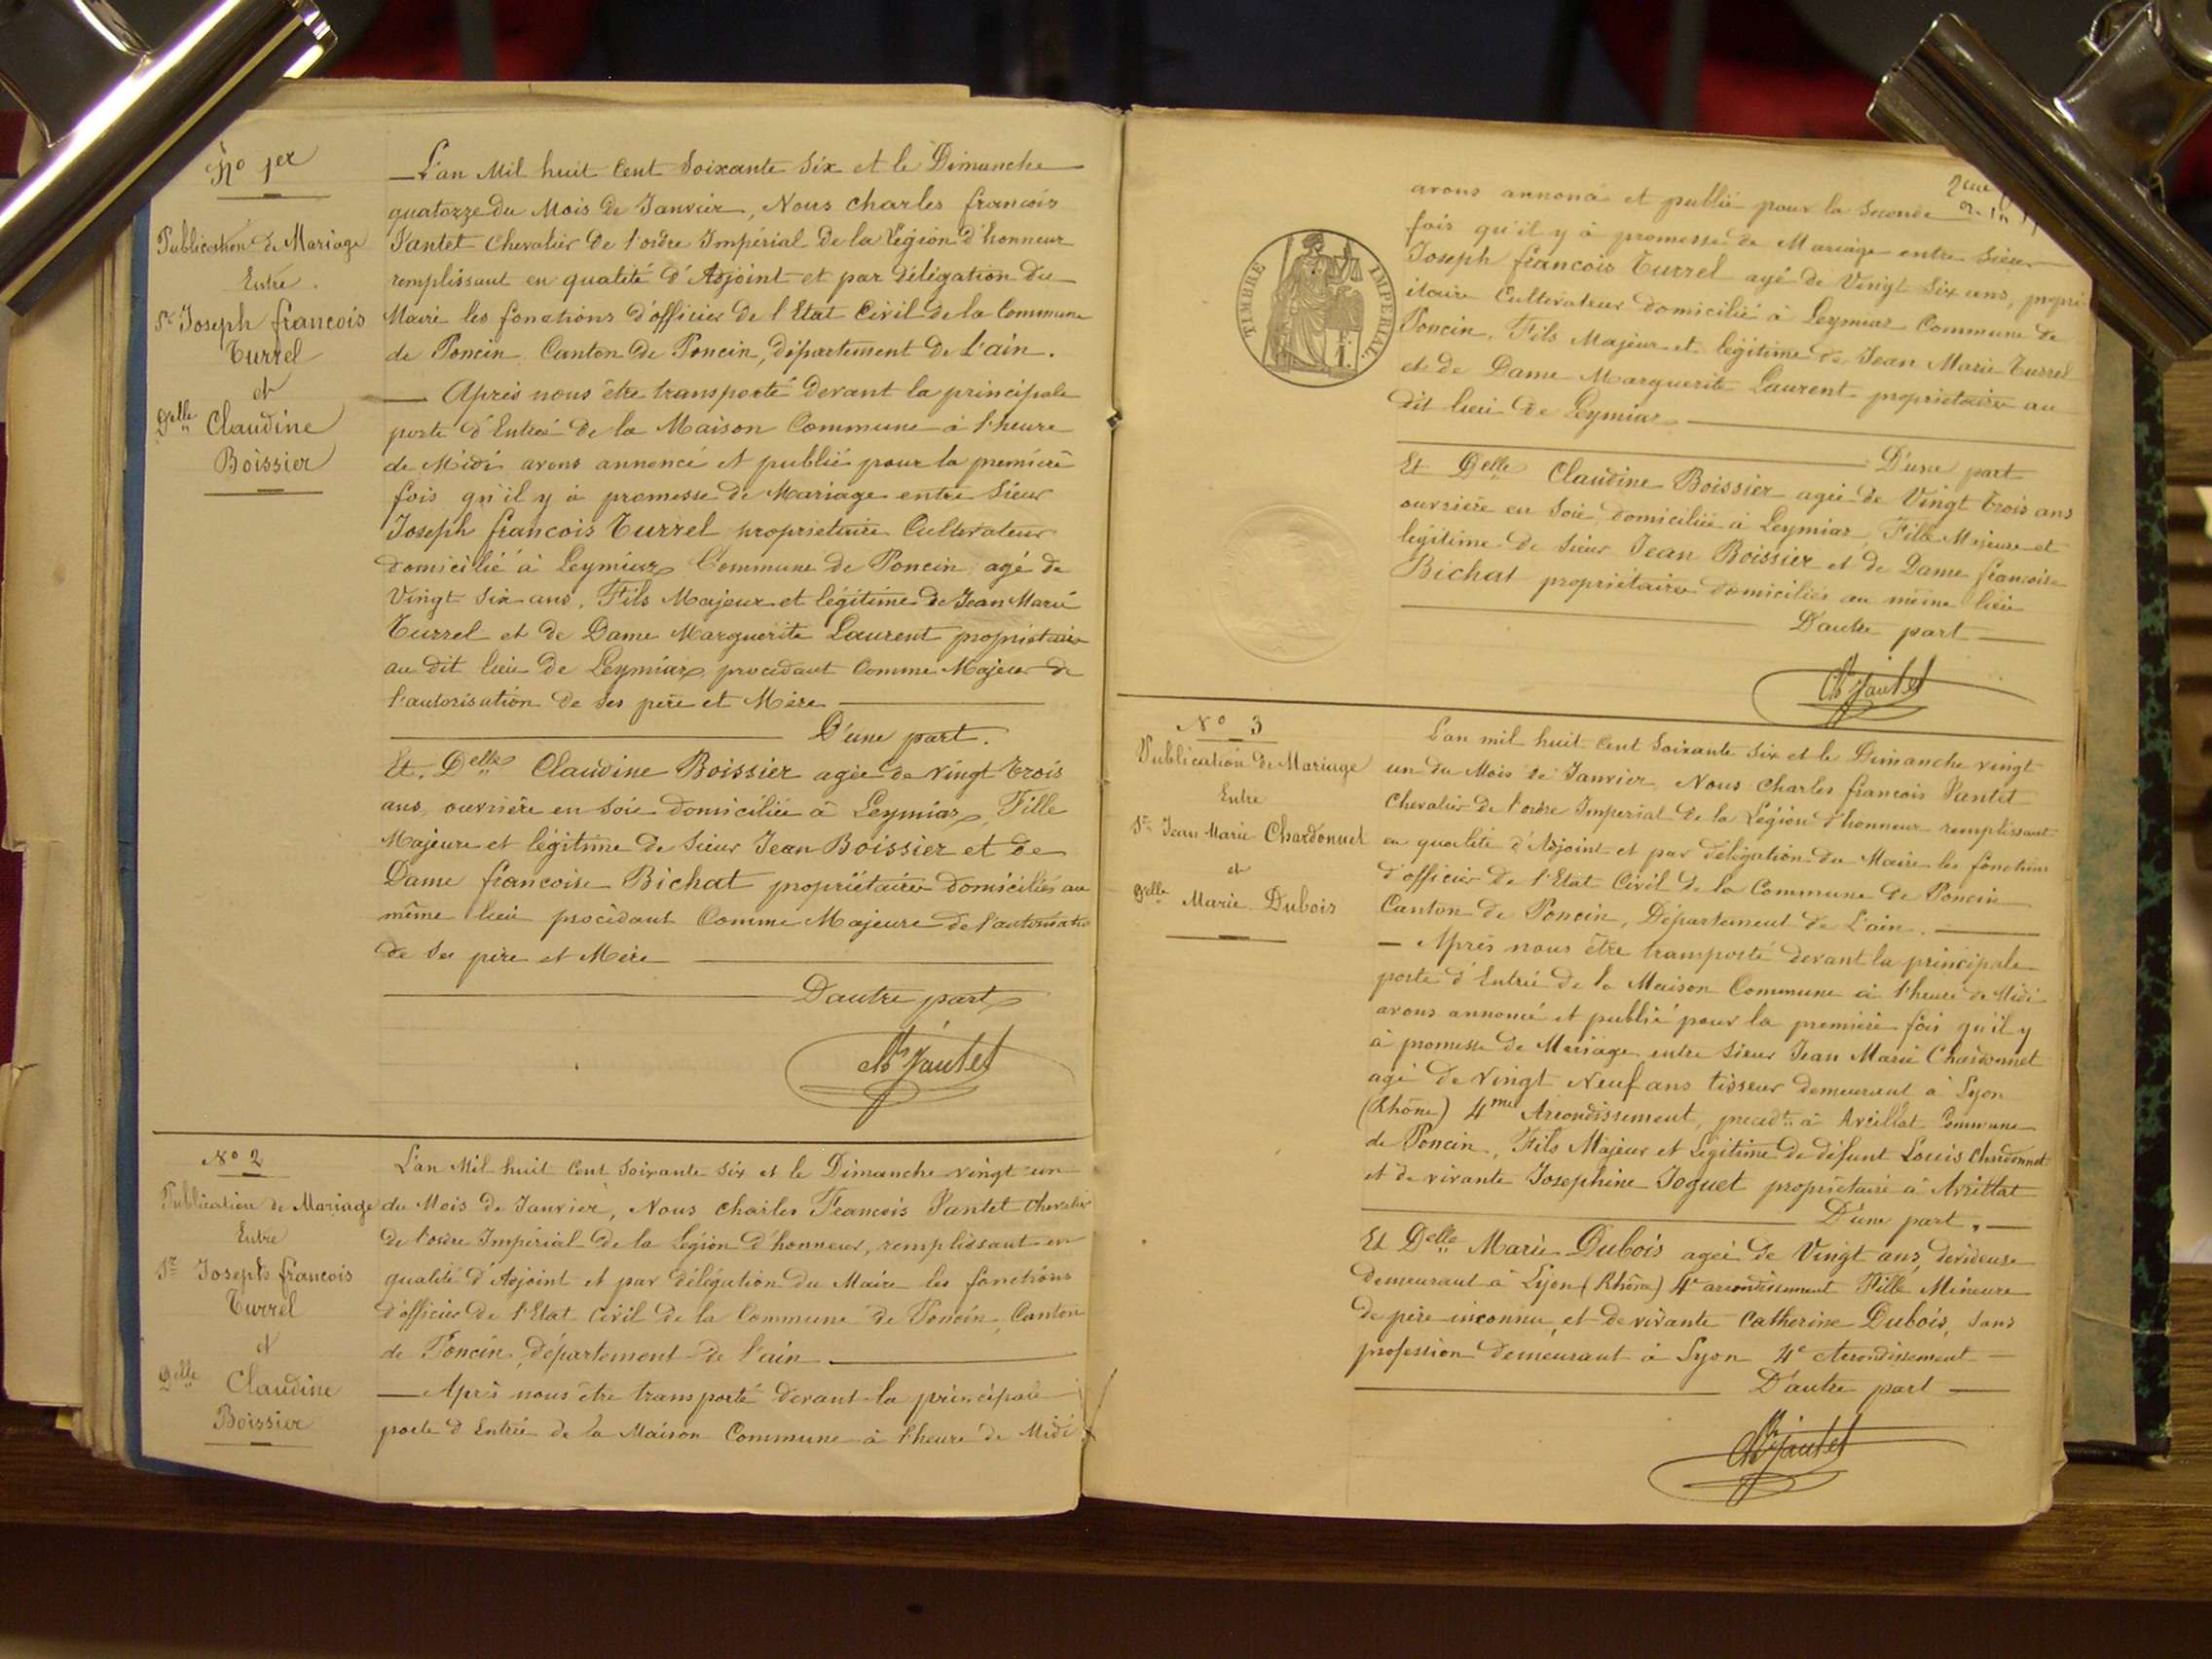 No 1er
Publication de Mariage
Entre
Sr Joseph francois
Turrel
et
Delle Claudine
Boissier
L'an Mil huit Cent Soixante Six et le Dimanche
quatorze du Mois de Janvier, Nous Charles francois
Pantet Chevalier De l'ordre Impérial de la Légion d'honneur
remplissant en qualité d'Adjoint et par délégation du
Maire les fonctions d'officier de l'Etat Civil de la Commune
de Poncin Canton de Poncin, département de L'ain.
Après nous être transporté Devant la principale
porte d'Entrée de la Maison Commune à l'heure
de Midi avons annoncé et publié pour la première
fois qu'il y à promesse de Mariage entre Sieur
Joseph francois Turrel propriétaire Cultivateur
domicilié à Leymiaz Commune de Poncin agé de
Vingt Six ans, Fils Majeur et légitime de Jean Marie
Turrel et de Dame Marguerite Laurent propriétaire
au dit lieu de Leymiaz procédant Comme Majeur de
l'autorisation de Ses père et Mère
D'une part.
Et Delle Claudine Boissier agée de vingt trois
ans, ouvrière en soie domiciliée à Leymiaz, Fille
Majeure et légitime de Sieur Jean Boissier et de
Dame francoise Bichat propriétaires domiciliés au
même lieu procédant Comme Majeure de l'autorisatio
de Ses père et Mère
D'autre part
Ch Pantet
No 2
Publication de Mariage
Entre
Sr Joseph francois
Turrel
et
Delle Claudine
Boissier
L'an Mil huit Cent Soixante Six et le Dimanche vingt un
du Mois de Janvier, Nous Charles Francois Pantet Chevalier
de l'ordre Impérial de la Légion d'honneur, remplissant en
qualité d'Adjoint et par délégation du Maire les fonctions
d'officier de l'Etat Civil de la Commune de Poncin, Canton
de Poncin, département de l'ain
Après nous être transporté devant la principale
porte d'Entrée de la Maison Commune à l'heure de Midi
2eme
avons annoncé et publié pour la Seconde
fois qu'il y à promesse de Mariage entre Sieur
Joseph francois Turrel agé de Vingt Six ans, propri
étaire Cultivateur domicilié à Leymiaz Commune de
Poncin, Fils Majeur et légitime de Jean Marie Turrel
et de Dame Marguerite Laurent propriétaire au
dit lieu de Leymiaz
D'une part
Et Delle Claudine Boissier agée de Vingt trois ans
ouvrière en Soie, domiciliée à Leymiaz, Fille Majeure et
légitime de Sieur Jean Boissier et de Dame francoise
Bichat propriétaires domiciliés au même lieu
D'autre part
Ch Pantet
TIMBRE IMPERIAL
No 3
Publication de Mariage
Entre
Sr Jean Marie Chardonnet
et
Delle Marie Dubois
L'an mil huit Cent Soixante Six et le Dimanche vingt
un du Mois de Janvier, Nous Charles francois Pantet
Chevalier de l'ordre Imperial de la Légion d'honneur remplissant
en qualité d'Adjoint et par délégation du Maire les fonctions
d'officier de l'Etat Civil de la Commune de Poncin
Canton de Poncin, Département de L'ain.
Après nous être transporté devant la principale
porte d'Entrée de la Maison Commune à l'heure de Midi
avons annoncé et publié pour la première fois qu'il y
à promesse de Mariage entre Sieur Jean Marie Chardonnet
agé de Vingt Neuf ans tisseur demeurant à Lyon
(Rhône) 4me Arrondissement, précédt à Avrillat Commune
de Poncin, Fils Majeur et Légitime de défunt Louis Chardonnet
et de vivante Josephine Joguet propriétaire à Avrillat
D'une part,
Et Delle Marie Dubois agée de Vingt ans, devideuse
demeurant à Lyon (Rhône) 4e arrondissement Fille Mineure
de père inconnu, et de vivante Catherine Dubois, Sans
profession demeurant à Lyon 4e Arrondissement
D'autre part
Ch Pantet